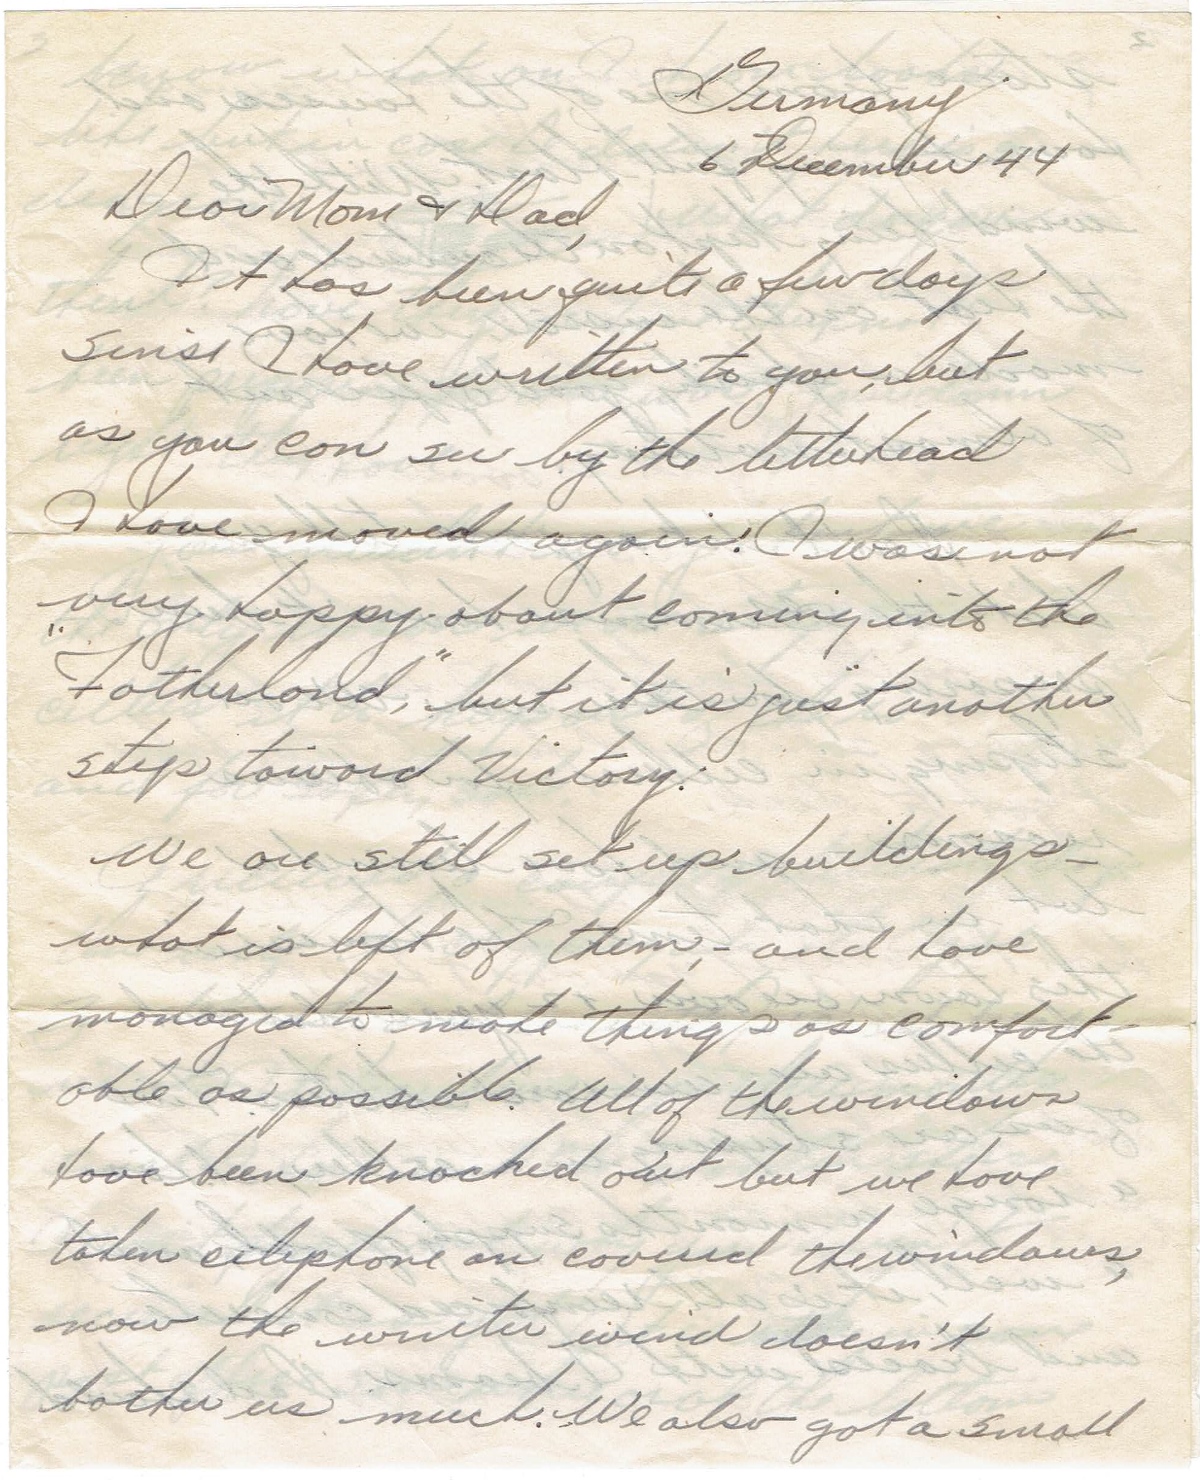 Germany
6 December 44
Dear Mom & Dad,
It has been quite a few days
sinse I have written to you, but
as you can see by the letterhead
I have moved again. I was not
very happy about coming into the
"Fatherland", but it is just another
step toward Victory.
We are still set up buildings -
what is left of them, - and have
managed to make things as comfort-
able as possible. All of the windows
have been knocked out but we have
taken celephone an covered the windows,
now the winter wind doesn't
bother us much. We also got a small